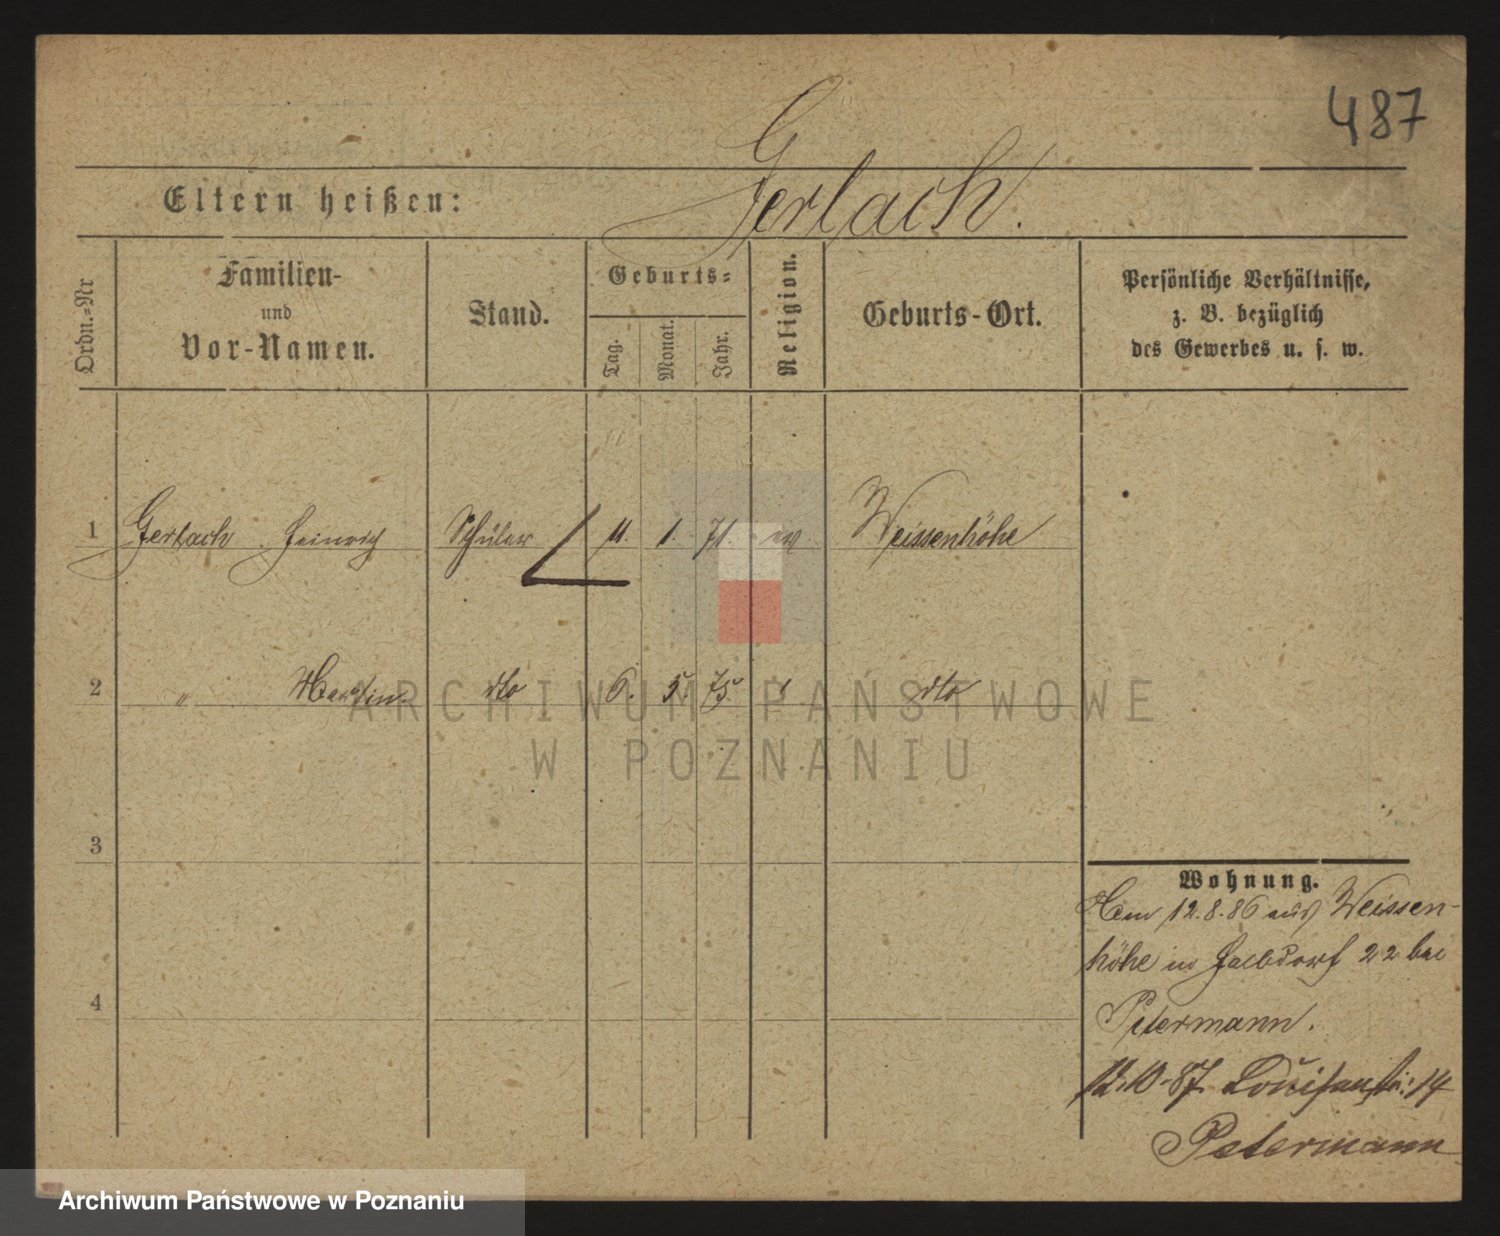 487
Gerlach.
Eltern heißen:
Ordn.-Nr
Familien-
und
Vor-Namen.
Stand.
Geburts-
Tag.
Monat.
Jahr.
Religion.
Geburts-Ort.
Persönliche Verhältnisse,
z. B. bezüglich
des Gewerbes u. s. w.
1 Gerlach Heinrich Schüler 11. 1. 71. ev Weissenhöhe
2 " Martin dto 6. 5. 75. " dto
3
4
Wohnung.
12.8.86 aus Weissen-
höhe in Halbdorf 22 bei
Petermann.
12.10.87. Louisenstr: 14
Petermann
ARCHIWUM PAŃSTWOWE
W POZNANIU
Archiwum Państwowe w Poznaniu